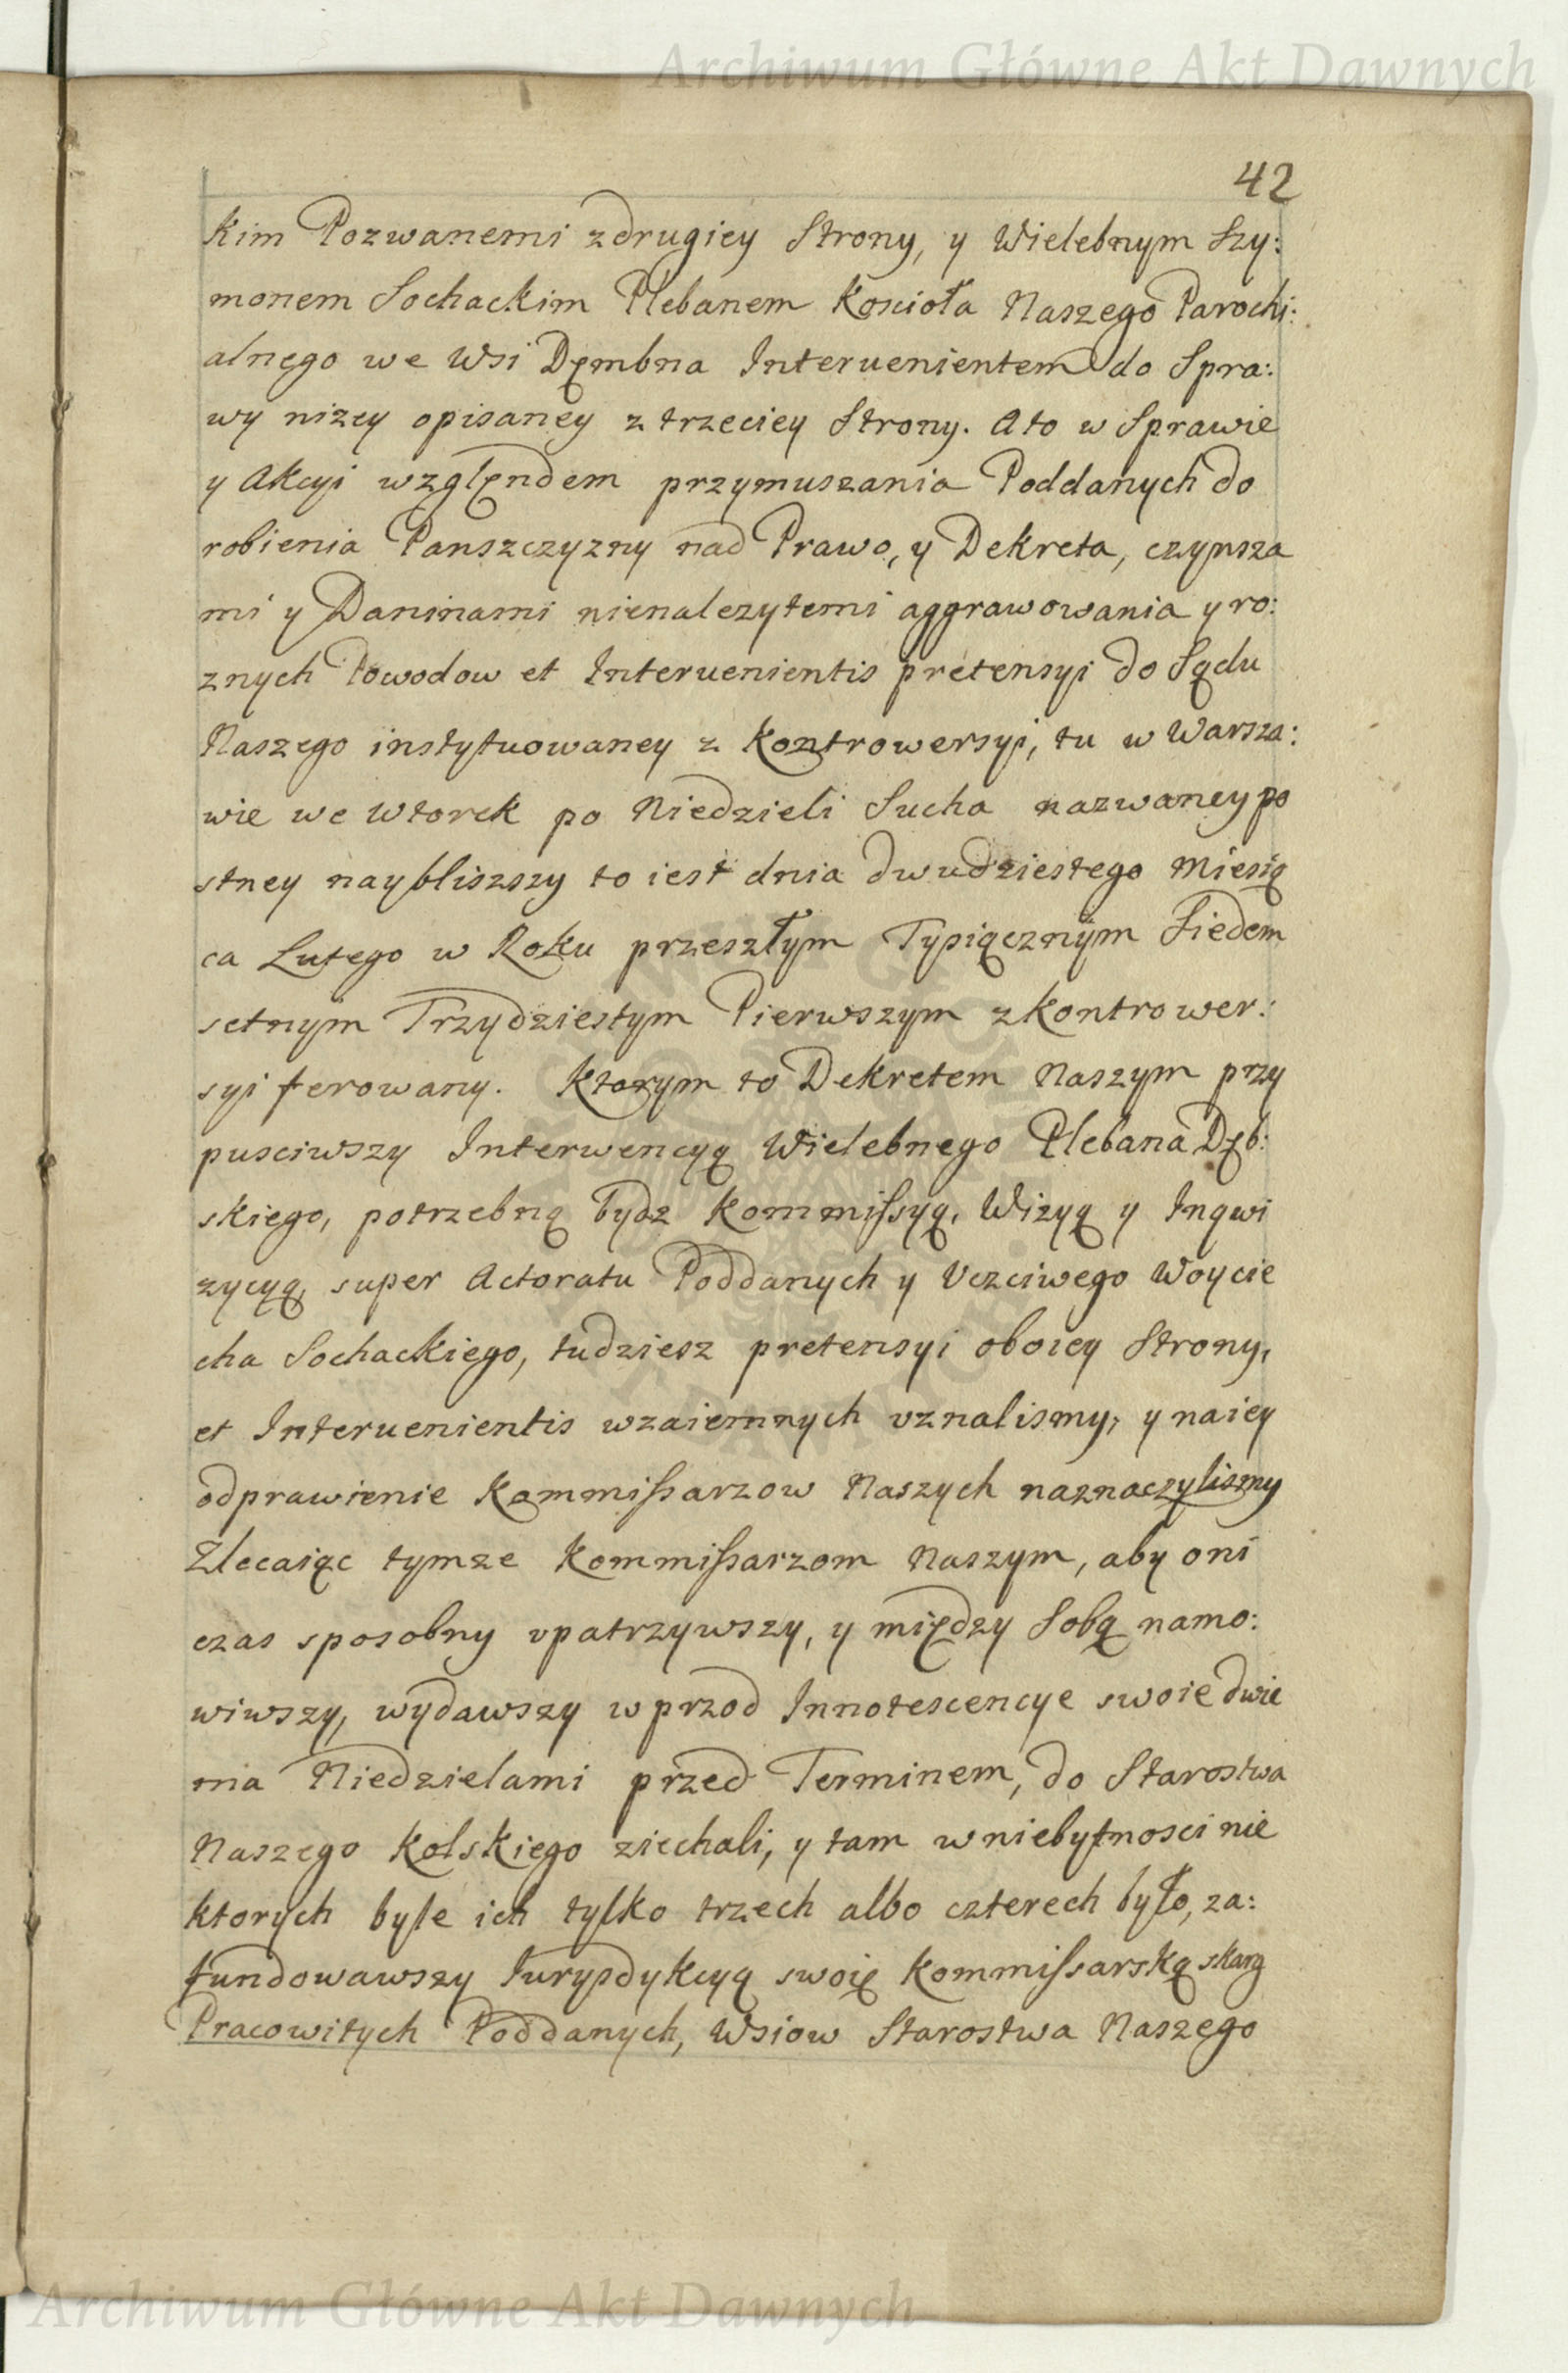 Archiwum Główne Akt Dawnych
42
kim Pozwanemi zdrugiey Strony, y Wielebnym Szy:
monem Sochackim Plebanem Koscioła Naszego Parochi:
alnego we Wsi Dęmbna Interuenientem do Spra:
wy nizey opisaney z trzeciey Strony. Ato w Sprawie
y Akcyi względnem przymuszania Poddanych do
robienia Panszczyzny nad Prawo, y Dekreta, czynsza
mi y Daninami nienalezytemi aggrawowania y ro:
znych Powodow et Interuenientis pretensyi do Sądu
Naszego instytuowaney z Kontrowersyi, tu w Warsza:
wie we Wtorek po Niedzieli Sucha nazwaney po
stney naybliszszy to iest dnia dwudziestego Miesią
ca Lutego w Roku przeszłym Tysiącznym Siedem
setnym Trzydziestym Pierwszym z Kontrower:
syi ferowany. Ktorym to Dekretem Naszym przy
pusciwszy Interwencyą Wielebnego Plebana Dęb:
skiego, potrzebną bydz Kommissyą, Wizyą y Inqwi
zycyą, super Actoratu Poddanych y Vczciwego Woycie
cha Sochackiego, tudziesz pretensyi oboiey Strony,
et Interuenientis wzaiemnych vznalismy, y na iey
odprawienie Kommissarzow Naszych naznaczylismy
Zlecaiąc tymze Kommissarzom Naszym, aby oni
czas sposobny vpatrzywszy, y między Sobą namo:
wiwszy, wydawszy wprzod Innotescencye swoie dwie
ma Niedzielami przed Terminem, do Starostwa
Naszego Kolskiego ziechali, y tam w niebytnosci nie
ktorych byle ich tylko trzech albo czterech było, za:
fundowawszy Jurysdykcyą swoię Kommissarską skarg
Pracowitych Poddanych, Wsiow Starostwa Naszego
Archiwum Główne Akt Dawnych